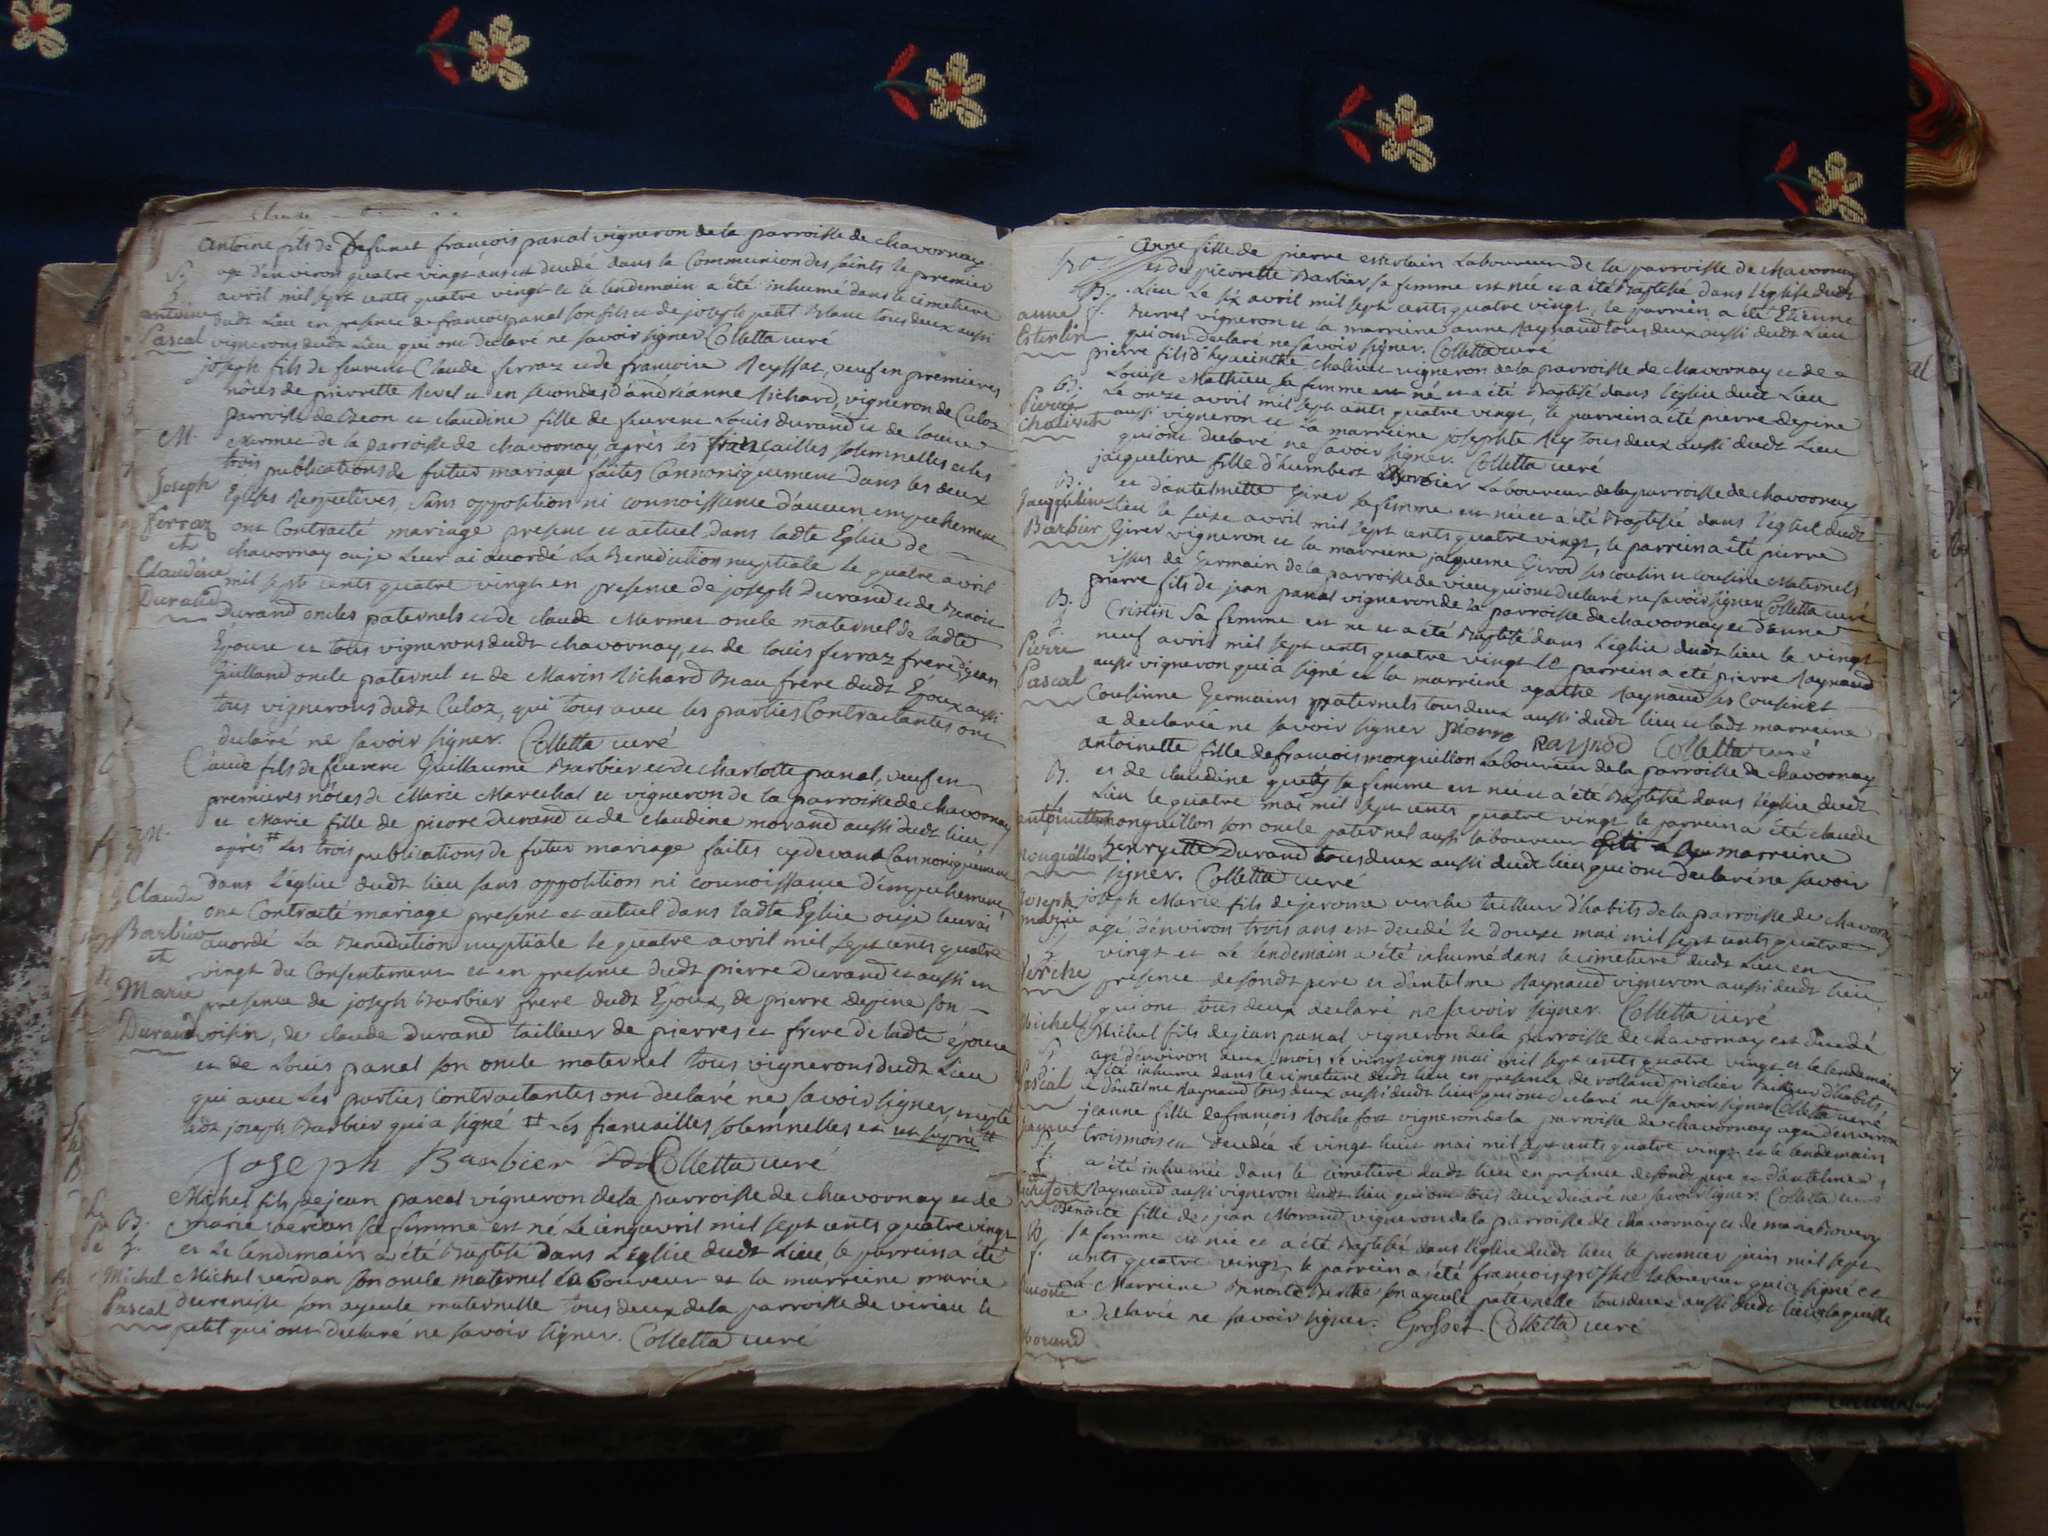 Antoine fils de Defunct françois pascal vigneron de la parroisse de chavornay
age d'environ quatre vingt ans est decedé dans la Communion des saints le premier
avril mil sept cents quatre vingt et le lendemain a été inhumé dans le cimetiere
dudt Lieu en presence de françois pascal son fils et de joseph petit Blanc tous deux aussi
vignerons dudt Lieu qui ont declaré ne savoir signer Colletta curé
S.
antoine
Pascal
joseph fils de feurent Claude ferraz et de francoise Reyssat, veuf en premieres
nôces de pierrette Revel et en secondes d'andréanne Richard, vigneron de Culoz
parroisse de et claudine fille de feurent Louis durand et de Louise
mermet de la parroisse de chavornay, après les fiancailles solemnelles et les
trois publications de futur mariage faites Cannoniquement dans les deux
Eglises Respectives, sans opposition ni connoissance d'aucun empechement
ont Contracté mariage present et actuel dans ladte Eglise de
chavornay ou je Leur ai accordé La Benediction nuptiale le quatre avril
mil sept cents quatre vingt en presence de joseph Durand et de Benoit
Durand oncles paternels et de claude Mermet oncle maternel de ladte
Epouse et tous vignerons dudt chavornay, et de louis ferraz frere de jean
Guilland oncle paternel et de Marin Richard Beau frere dudt Epoux aussi
tous vignerons dudt Culoz, qui tous avec les parties Contractantes ont
declaré ne savoir signer. Colletta curé
M.
Joseph
ferraz
et
Claudine
Durand
Claude fils de feurent Guillaume Barbier et de charlotte pascal, veuf en
premieres nôces de Marie Marechal et vigneron de la parroisse de chavornay
et Marie fille de pierre Durand et de claudine morand aussi dudt lieu,
après # Les trois publications de futur mariage faites cydevant Cannoniquement
dans L'église dudt lieu sans opposition ni connoissance d'empechement
ont Contracté mariage present et actuel dans ladte Eglise ou je leur ai
accordé La Benediction nuptiale le quatre avril mil sept cents quatre
vingt du Consentement et en presence dudt pierre Durand et aussi en
presence de joseph Barbier frere dudt Epoux, de pierre depine son
voisin, de claude Durand tailleur de pierres et frere de ladte épouse
et de Louis pascal son oncle maternel tous vignerons dudt Lieu
qui avec Les parties Contractantes ont declaré ne savoir signer, excepté
ledt joseph Barbier qui a signé # Les fiancailles solemnelles et
Joseph Barbier Colletta curé
M.
Claude
Barbier
et
Marie
Durand
Michel fils de jean pascal vigneron de la parroisse de chavornay et de
marie verdan sa femme est né Le cinq avril mil sept cents quatre vingt
et Le lendemain a été Baptisé dans L'église dudt Lieu, le parrein a été
Michel verdan son oncle maternel Laboureur et la marreine marie
son ayeule maternelle tous deux de la parroisse de virieu le
petit qui ont declaré ne savoir signer. Colletta curé
B.
Michel
Pascal
Anne fille de pierre esterlain Laboureur de la parroisse de chavornay
et de pierrette Barbier sa femme est née et a été Baptisée dans l'église dudt
Lieu Le six avril mil sept cents quatre vingt, le parrein a été Etienne
Burret vigneron et la marreine anne Raynaud tous deux aussi dudt Lieu
qui ont declaré ne savoir signer. Colletta curé
B.
anne
Esterlin
pierre fils d'hyacinthe chalivet vigneron de la parroisse de chavornay et de
Louise Mathieu sa femme est né et a été Baptisé dans l'église dudt Lieu
Le onze avril mil sept cents quatre vingt, le parrein a été pierre depine
aussi vigneron et La marreine josephte Rey tous deux aussi dudt Lieu
qui ont declaré ne savoir signer. Colletta curé
B.
Pierre
Chalivet
jacqueline fille d'humbert Barbier Laboureur de la parroisse de chavornay
et d'antelmette Girer sa femme est née et a été Baptisée dans l'église dudt
lieu le seize avril mil sept cents quatre vingt, le parrein a été pierre
Girer vigneron et la marreine jaqueme Girod ses cousin et cousine Maternels
issus de Germain de la parroisse de vieu qui ont declaré ne savoir signer Colletta curé
B.
Jacqueline
Barbier
pierre fils de jean pascal vigneron de la parroisse de chavornay et d'anne
Cristin sa femme est né et a été Baptisé dans l'église dudt lieu le vingt
neuf avril mil sept cents quatre vingt Le parrein a été pierre Raynaud
aussi vigneron qui a signé et la marreine agathe Raynaud ses Cousin et
Cousinne Germains paternels tous deux aussi dudt lieu et ladt marreine
a declarée ne savoir signer pierre Raynod Colletta curé
B.
Pierre
Pascal
antoinette fille de francois monguillon Laboureur de la parroisse de chavornay
et de claudine sa femme est née et a été Baptisée dans l'église dudt
Lieu le quatre mai mil sept cents quatre vingt le parrein a été claude
monguillon son oncle paternel aussi laboureur et la marreine
henryette Durand tous deux aussi dudt lieu qui ont declaré ne savoir
signer. Colletta curé
B.
antoinette
monguillon
joseph Marie fils de jerome verche tailleur d'habits de la parroisse de chavornay
agé d'environ trois ans est decedé le douze mai mil sept cents quatre
vingt et Le lendemain a été inhumé dans le cimetiere dudt Lieu en
presence de sondt pere et d'antelme Raynaud vigneron aussi dudt lieu
qui ont tous deux declaré ne savoir signer. Colletta curé
Joseph
marie
Verche
Michel fils de jean pascal vigneron de la parroisse de chavornay est decedé
age d'environ deux mois le vingt cinq mai mil sept cents quatre vingt et le lendemain
a été inhumé dans le cimetiere dudt lieu en presence de rolland tailleur d'habits
et d'antelme Raynaud tous deux aussi dudt lieu qui ont declaré ne savoir signer Colletta curé
Michel
S.
Pascal
jeanne fille de francois Rochefort vigneron de la parroisse de chavornay agée d'environ
trois mois est decedée Le vingt huit mai mil sept cents quatre vingt et le lendemain
a été inhumée dans le cimetiere dudt lieu en presence de sondt pere et d'antelme
Raynaud aussi vigneron dudt lieu qui ont tous deux declaré ne savoir signer. Colletta curé
jeanne
S.
Rochefort
Benoite fille de jean Morand vigneron de la parroisse de chavornay et de marie
sa femme est née et a été Baptisée dans l'église dudt lieu le premier juin mil sept
cents quatre vingt, le parrein a été francois grosset laboureur qui a signé et
La Marreine Benoite Berthe son ayeule paternelle tous deux aussi dudt lieu laquelle
a declarée ne savoir signer. Grosset Colletta curé
B.
Benoite
Morand